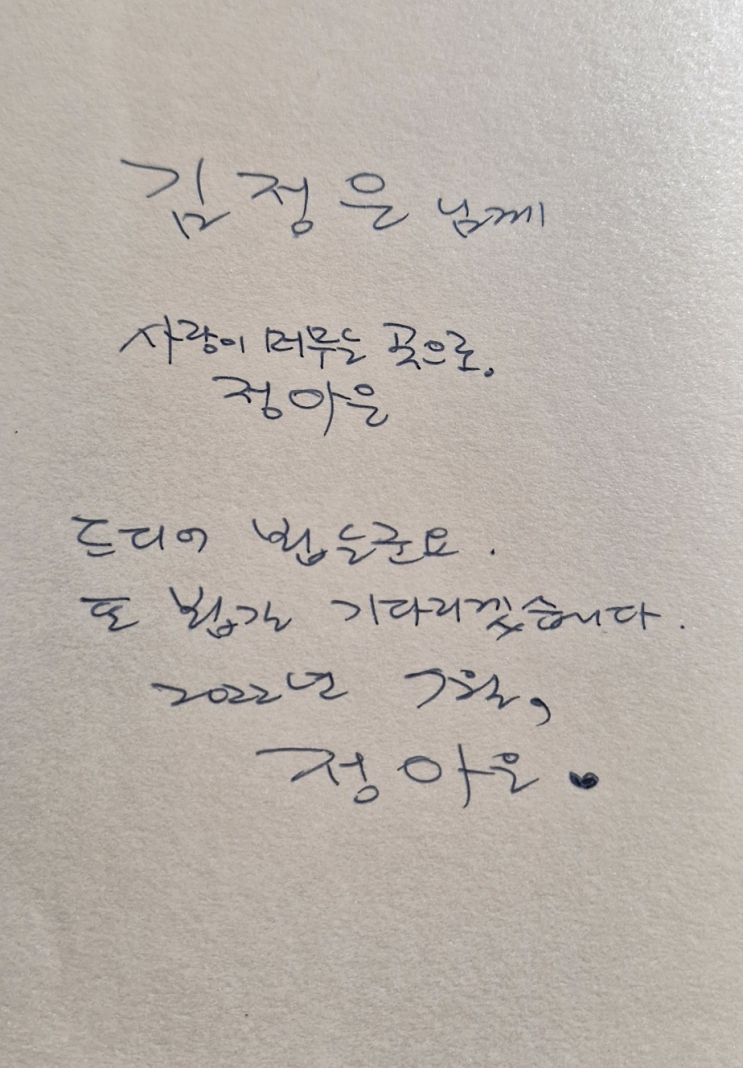 김정은 님께
사랑이 머무는 곳으로.
정아은
드디어 뵙는군요.
또 뵙길 기다리겠습니다.
2022년 7월,
정아은 ♥